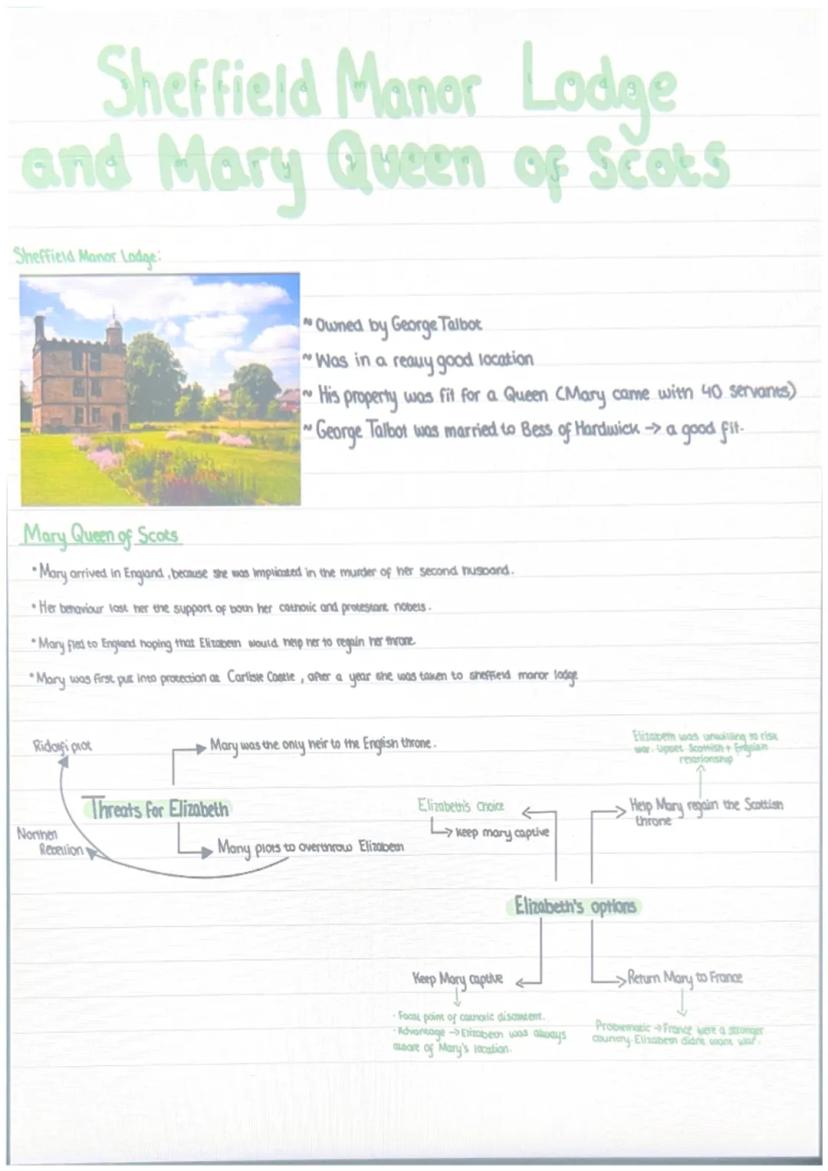 Sheffield Manor Lodge
and Mary Queen of Scots
Sheffield Manor Lodge:
~ Owned by George Talbot
~ Was in a really good location
~ His property was fit for a Queen (Mary came with 40 servants)
~ George Talbot was married to Bess of Hardwick → a good fit.
Mary Queen of Scots
• Mary arrived in England, because she was implicated in the murder of her second husband.
• Her behaviour lost her the support of both her catholic and protestant nobels.
• Mary fled to England hoping that Elizabeth would help her to regain her throne
• Mary was first put into protection at Carlisle Castle, after a year she was taken to sheffield manor lodge
Ridolfi plot
Mary was the only heir to the English throne.
Threats for Elizabeth
Northen
Rebellion
Many plots to overthrow Elizabeth
Elizabeth was unwilling to risk
war. Upset Scottish + English
relationship
Elizabeth's choice
→ keep mary captive
Help Mary regain the Scottish
throne
Elizabeth's options
Keep Mary captive
Return Mary to France
· Focal point of catholic discontent.
· Advantage → Elizabeth was always
aware of Mary's location.
Problematic → France were a stronger
country. Elizabeth didnt want war.